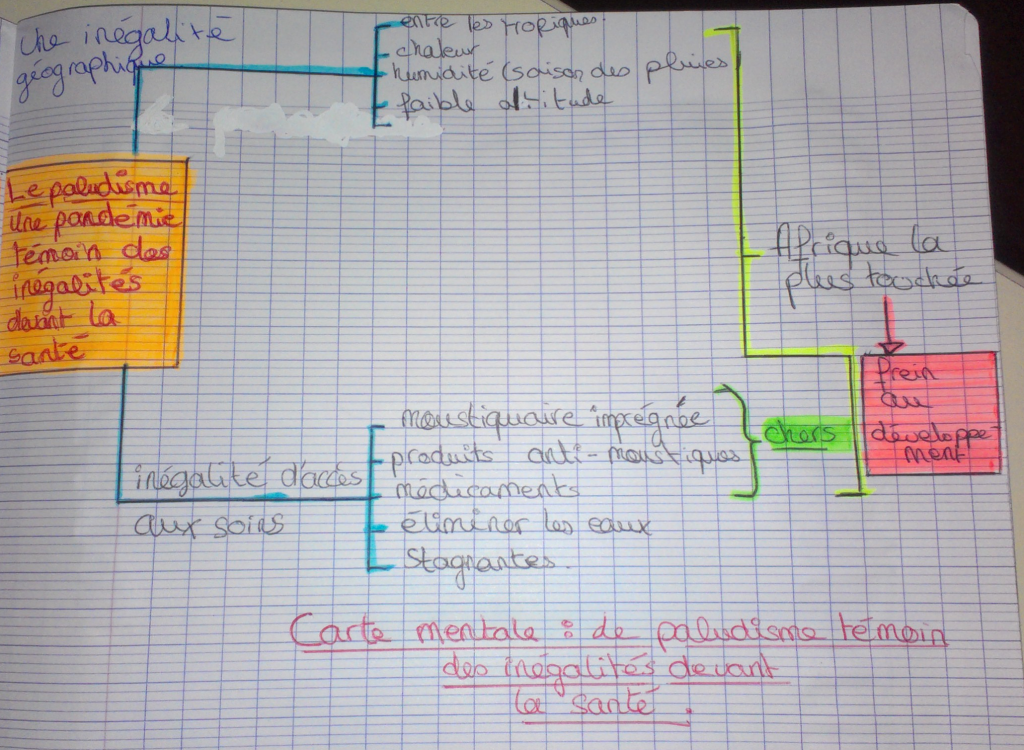 Une inégalité
géographique
entre les tropiques.
chaleur
humidité (saison des pluies
faible altitude
Le paludisme
Une pandémie
témoin des
inégalités
devant la
santé
Afrique la
plus touchée
frein
au
développe-
ment
inégalité d'accès
aux soins
moustiquaire imprégnée
produits anti-moustiques
médicaments
éliminer les eaux
stagnantes.
chers
Carte mentale : de paludisme témoin
des inégalités devant
la santé.